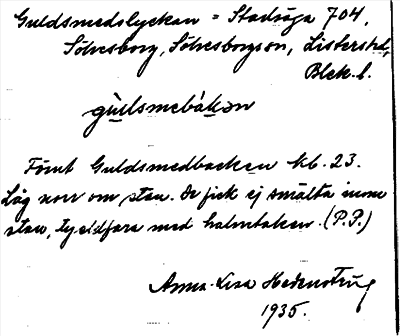 Guldsmedslyckan = Stadsäga 704,
Sölvesborg, Sölvesborgson, Listershd,
Blek. l.
gùllsmebàkən
Förut Guldsmedbacken kb. 23.
Låg norr om stan. De fick ej smälta inne i
stan, ty eldfara med halmtaken. (P.P.)
Anna-Lisa Hedenstrüg
1935.